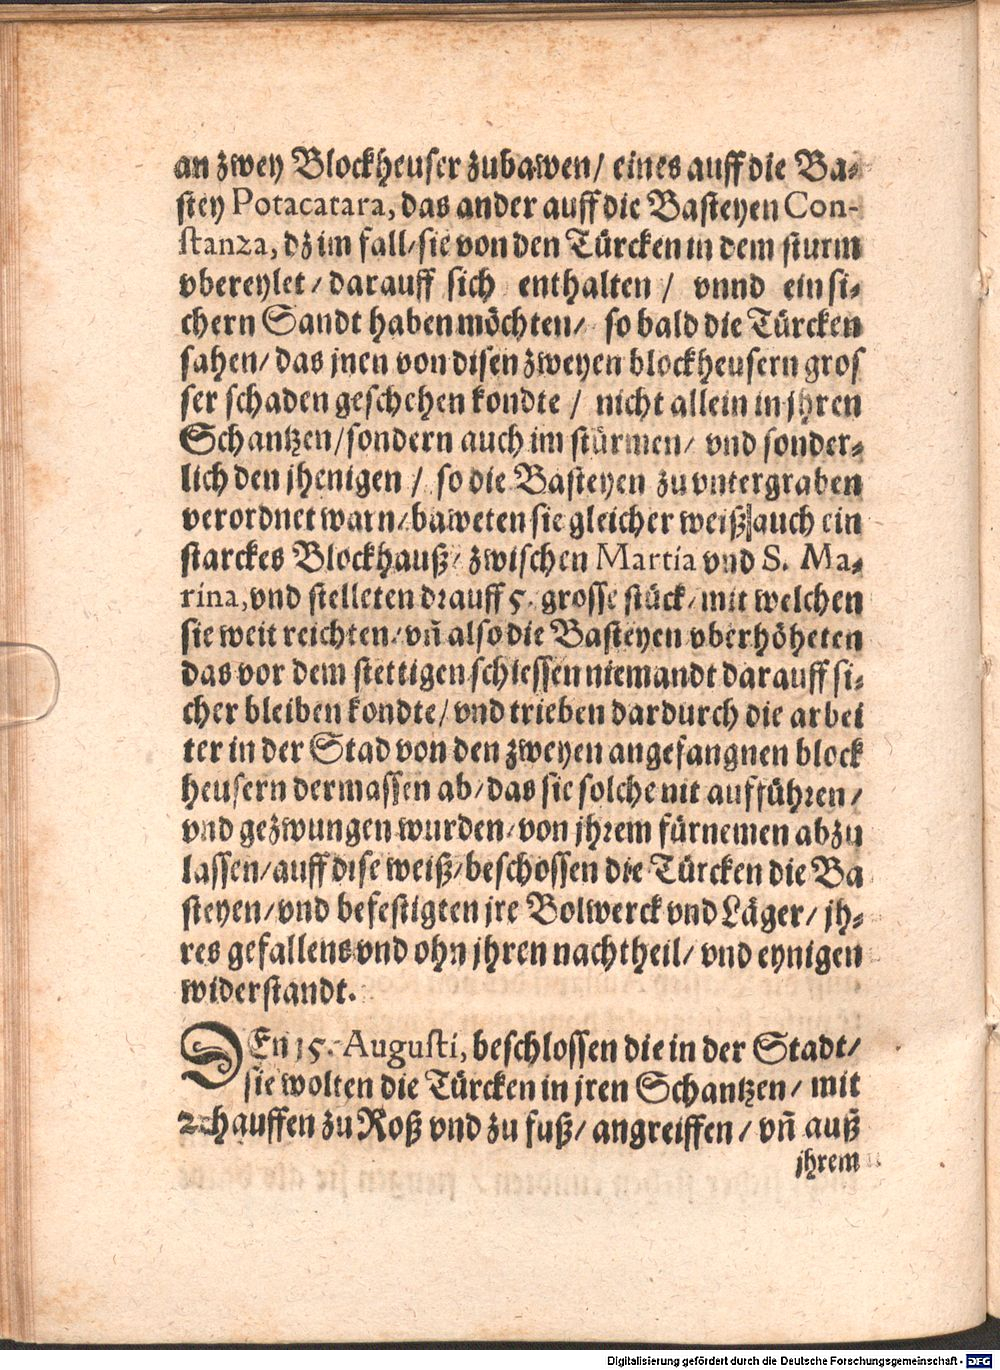 an zwey Blockheuser zubawen/ eines auff die Ba-
stey Potacatara, das ander auff die Basteyen Con-
stanza, dz im fall/ sie von den Türcken in dem sturm
vbereylet/ darauff sich enthalten/ vnnd ein si-
chern Sandt haben möchten/ so bald die Türcken
sahen/ das jnen von disen zweyen blockheusern gros
ser schaden geschehen kondte/ nicht allein in jhren
Schantzen/ sondern auch im stürmen/ vnd sonder-
lich den jhenigen/ so die Basteyen zu vntergraben
verordnet warn/ baweten sie gleicher weiß auch ein
starckes Blockhauß/ zwischen Martia vnd S. Ma-
rina, vnd stelleten drauff 5. grosse stück/ mit welchen
sie weit reichten/ vñ also die Basteyen vberhöheten
das vor dem stettigen schiessen niemandt darauff si-
cher bleiben kondte/ vnd trieben dardurch die arbei
ter in der Stad von den zweyen angefangnen block
heusern dermassen ab/ das sie solche nit aufführen/
vnd gezwungen wurden/ von jhrem fürnemen abzu
lassen/ auff dise weiß/ beschossen die Türcken die Ba
steyen/ vnd befestigten jre Bolwerck vnd Läger/ jh-
res gefallens vnd ohn jhren nachtheil/ vnd eynigen
widerstandt.
DEn 15. Augusti, beschlossen die in der Stadt/
sie wolten die Türcken in jren Schantzen/ mit
2. hauffen zu Roß vnd zu fuß/ angreiffen/ vñ auß
jhrem
Digitalisierung gefördert durch die Deutsche Forschungsgemeinschaft - DFG